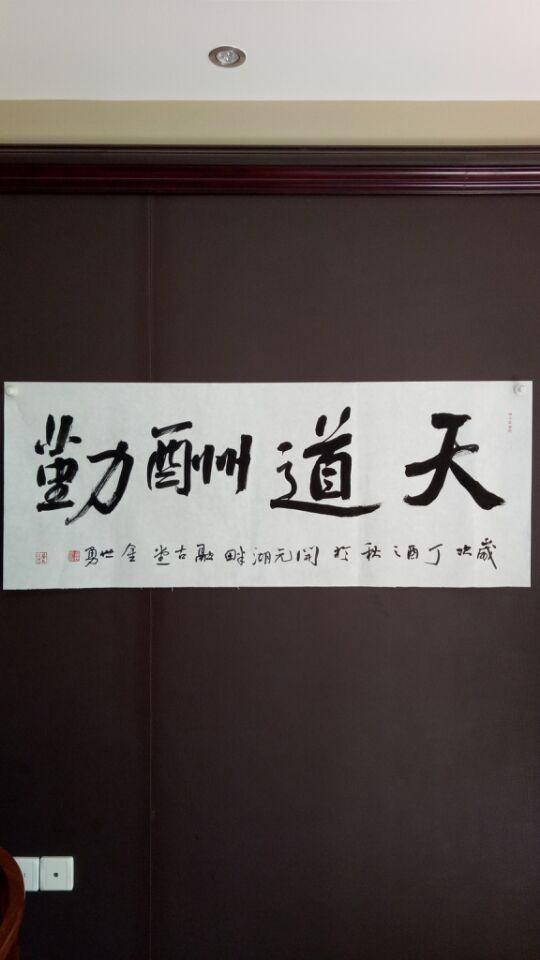 天道酬勤
歲次丁酉之秋於開元湖畔融古堂金世勇